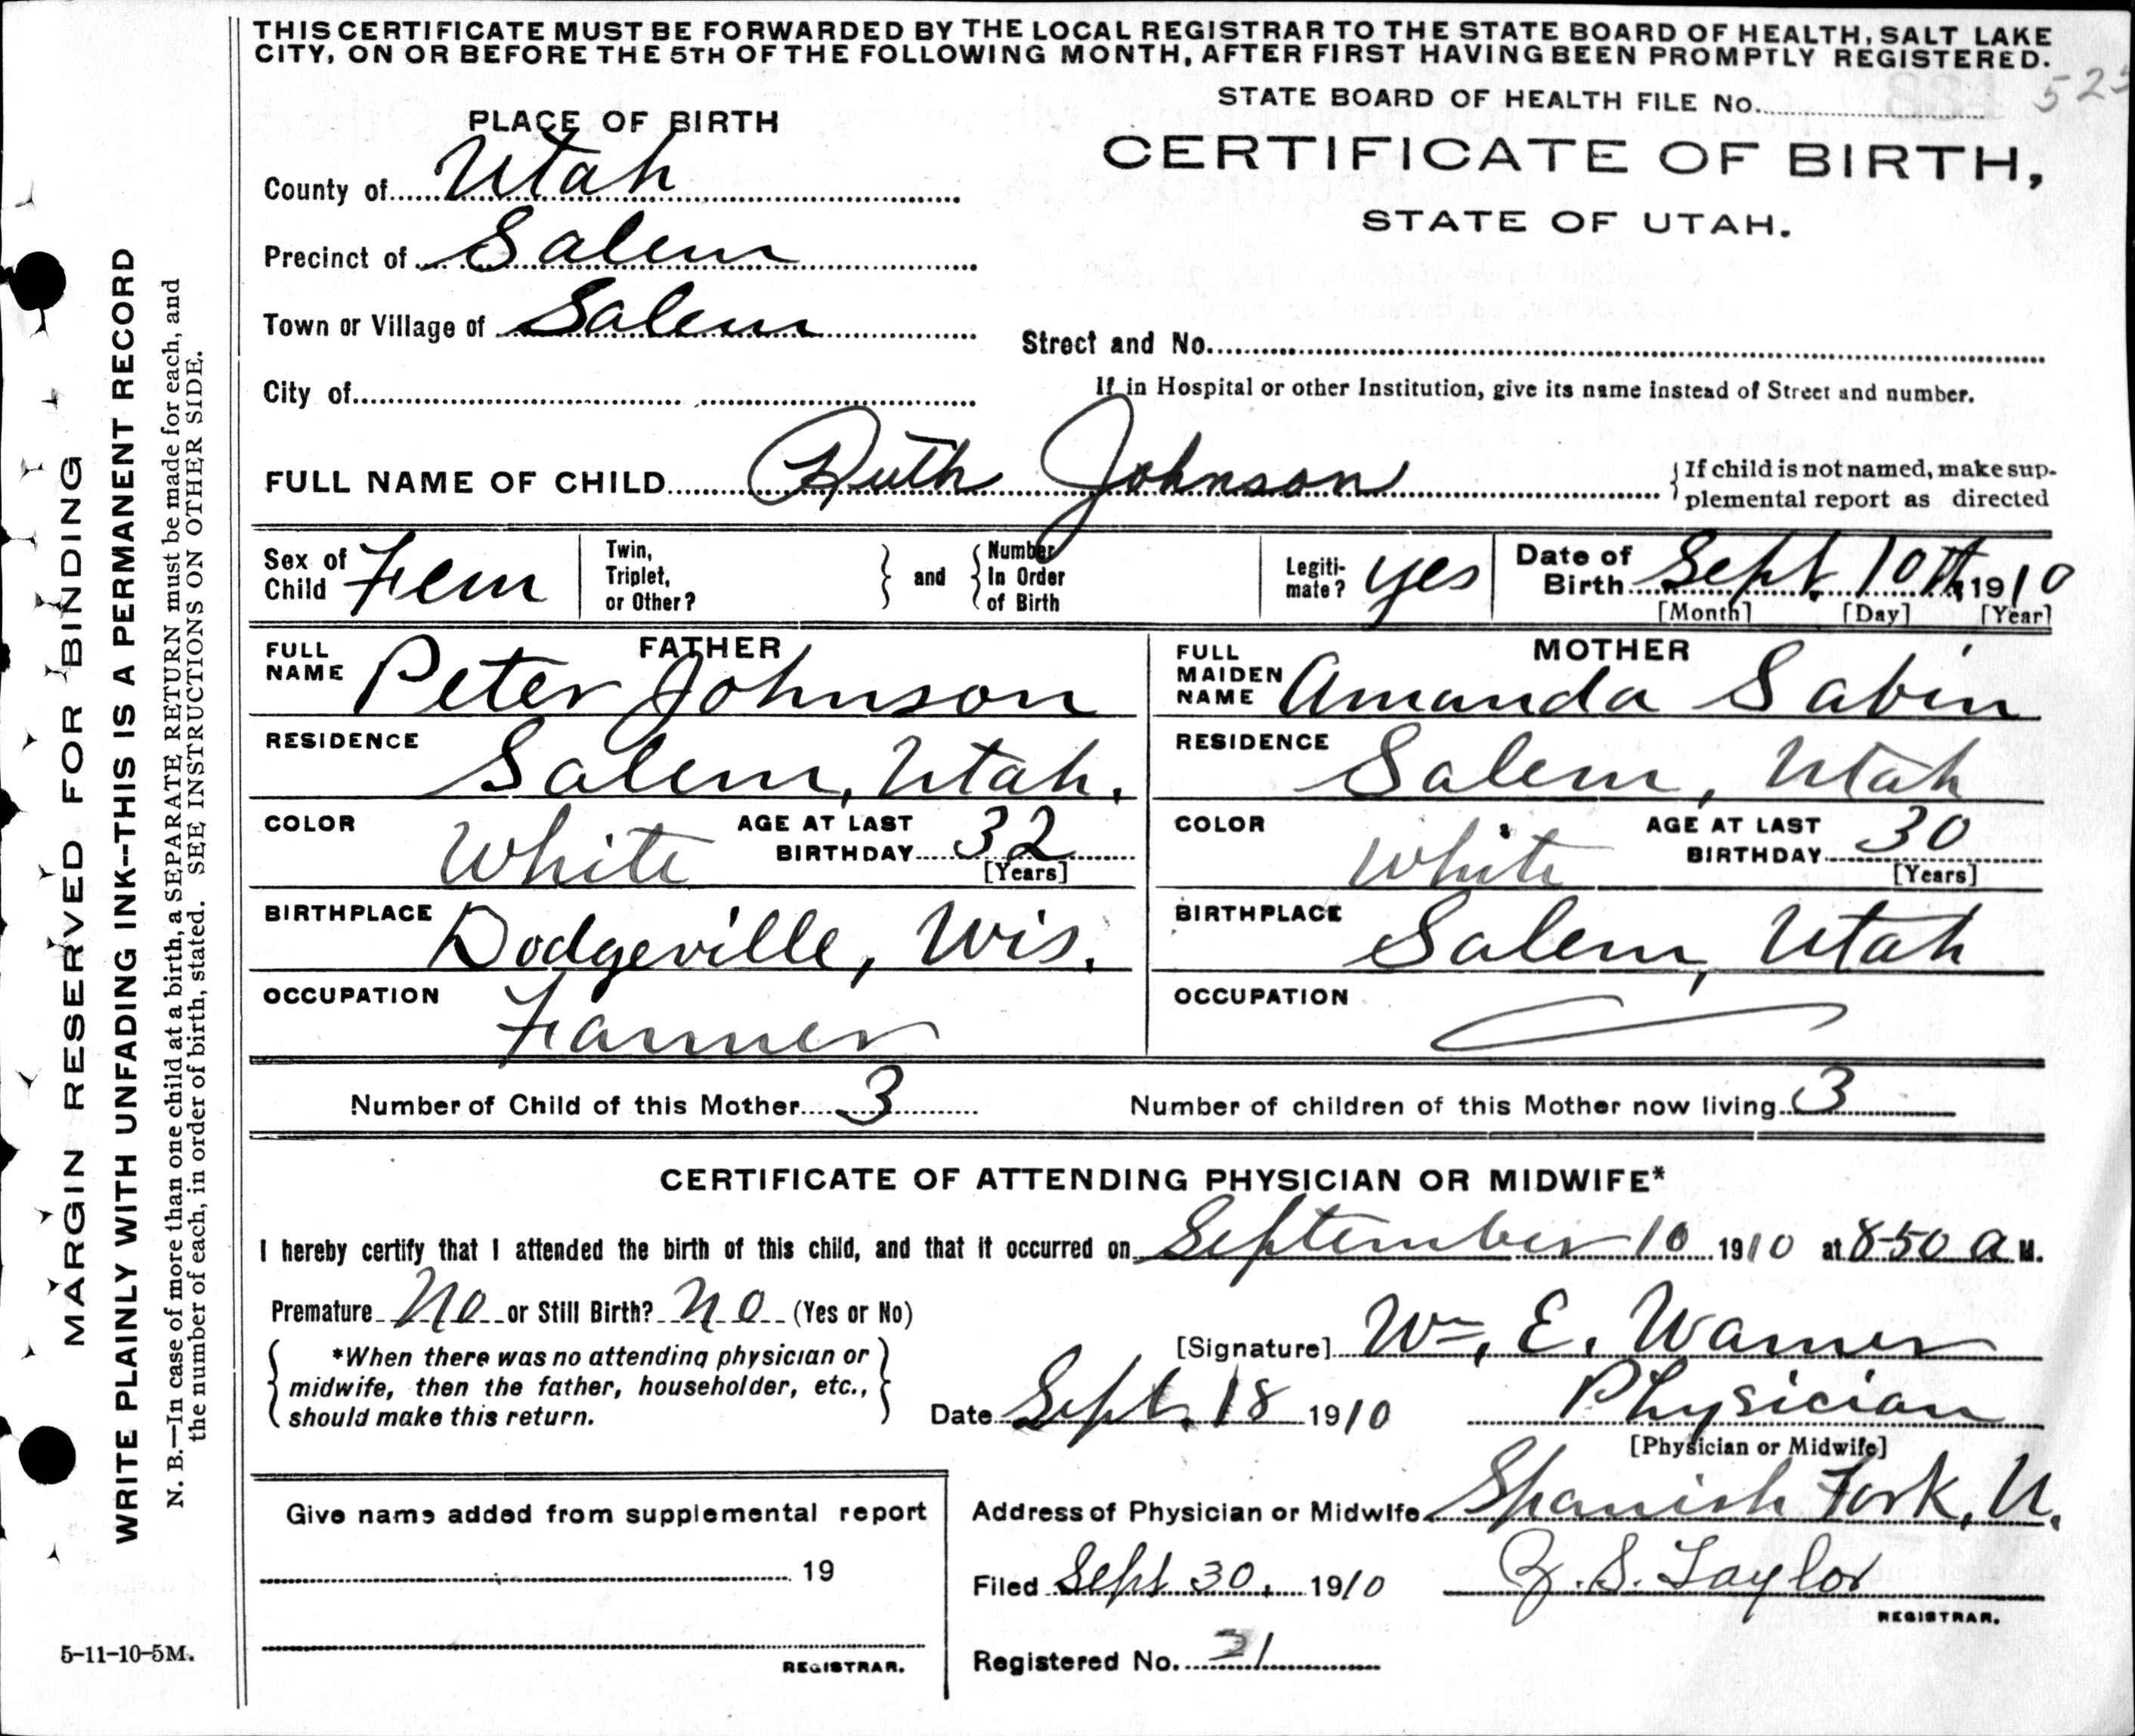 THIS CERTIFICATE MUST BE FORWARDED BY THE LOCAL REGISTRAR TO THE STATE BOARD OF HEALTH, SALT LAKE
CITY, ON OR BEFORE THE 5TH OF THE FOLLOWING MONTH, AFTER FIRST HAVING BEEN PROMPTLY REGISTERED.
STATE BOARD OF HEALTH FILE No.
PLACE OF BIRTH
CERTIFICATE OF BIRTH,
STATE OF UTAH.
County of Utah
Precinct of Salem
Town or Village of Salem
Street and No.
City of
If in Hospital or other Institution, give its name instead of Street and number.
FULL NAME OF CHILD Ruth Johnson
If child is not named, make sup-
plemental report as directed
Sex of Child Fem
Twin, Triplet, or Other?
and
Number In Order of Birth
Legiti-mate? yes
Date of Birth Sept. 10th 1910
[Month] [Day] [Year]
FATHER
FULL NAME Peter Johnson
RESIDENCE Salem, Utah.
COLOR White
AGE AT LAST BIRTHDAY 32 [Years]
BIRTHPLACE Dodgeville, Wis.
OCCUPATION Farmer
MOTHER
FULL MAIDEN NAME Amanda Sabin
RESIDENCE Salem, Utah
COLOR White
AGE AT LAST BIRTHDAY 30 [Years]
BIRTHPLACE Salem, Utah
OCCUPATION
Number of Child of this Mother 3
Number of children of this Mother now living 3
CERTIFICATE OF ATTENDING PHYSICIAN OR MIDWIFE*
I hereby certify that I attended the birth of this child, and that it occurred on September 10 1910 at 8-50 a M.
Premature No or Still Birth? No (Yes or No)
*When there was no attending physician or
midwife, then the father, householder, etc.,
should make this return.
[Signature] Wm. E. Warner
Date Sept. 18 1910
Physician
[Physician or Midwife]
Address of Physician or Midwife Spanish Fork, U.
Filed Sept 30, 1910
Z. S. Taylor
REGISTRAR.
Registered No. 21
Give name added from supplemental report
19
REGISTRAR.
5-11-10-5M.
MARGIN RESERVED FOR BINDING
WRITE PLAINLY WITH UNFADING INK--THIS IS A PERMANENT RECORD
N. B.—In case of more than one child at a birth, a SEPARATE RETURN must be made for each, and
the number of each, in order of birth, stated. SEE INSTRUCTIONS ON OTHER SIDE.